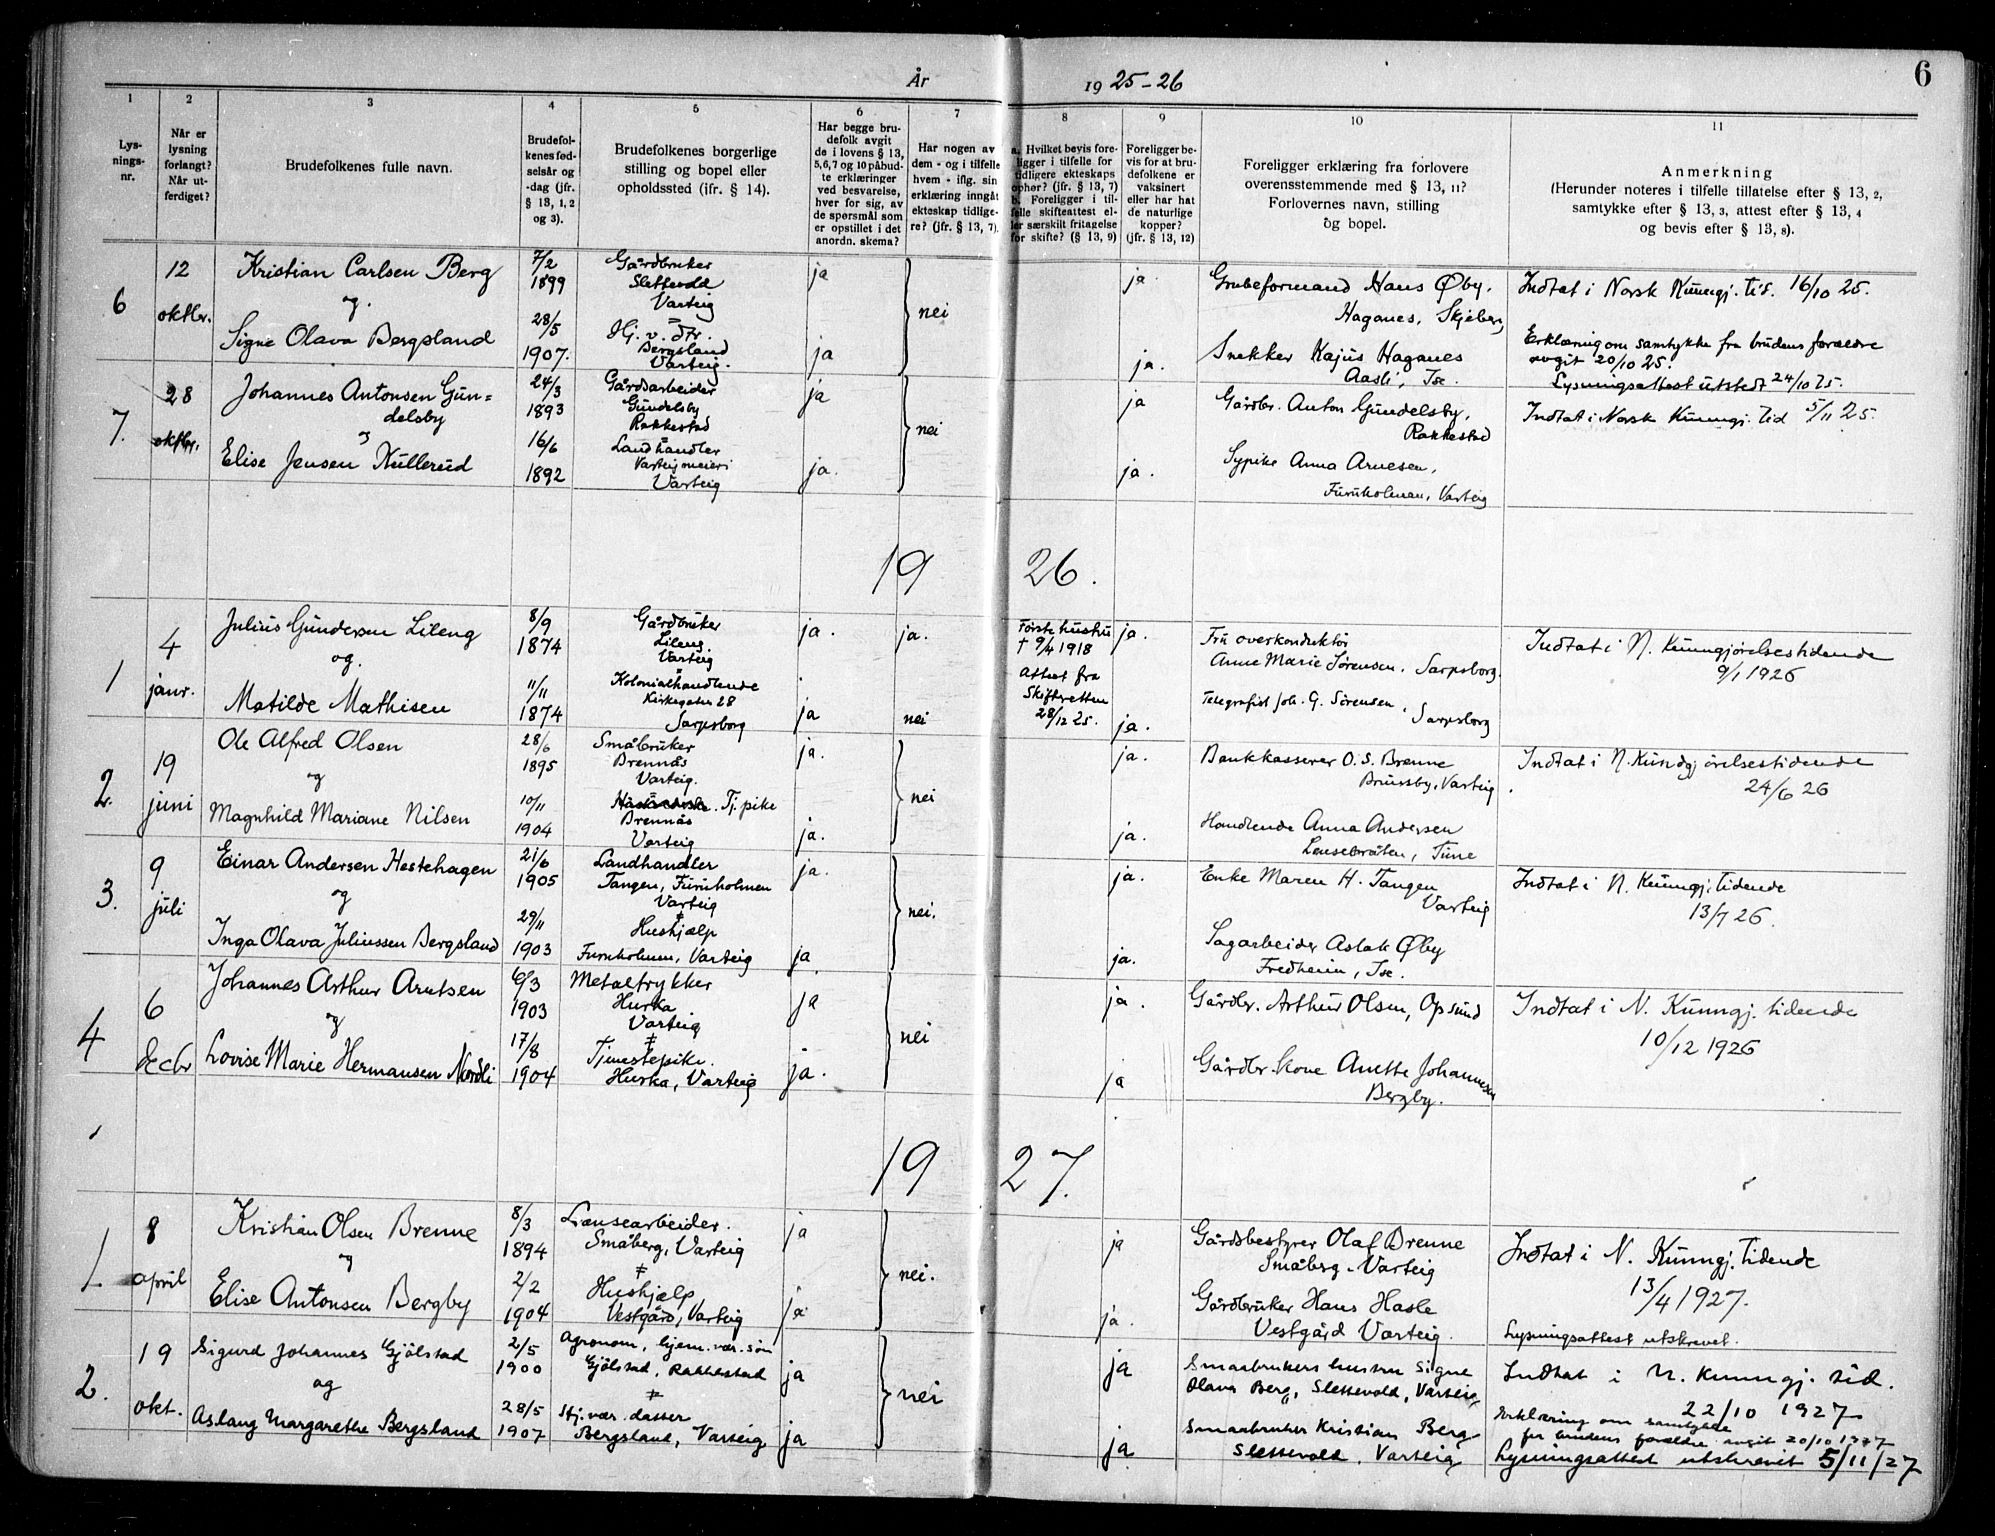 År 1925-26
6
1
2
3
4
5
6
7
8
9
10
11
Lys-
nings-
nr.
Når er
lysning
forlangt?
Når ut-
ferdiget?
Brudefolkenes fulle navn.
Brudefol-
kenes fød-
selsår og
-dag (jfr.
§ 13, 1, 2
og 3).
Brudefolkenes borgerlige
stilling og bopel eller
opholdssted (ifr. § 14).
Har begge bru-
defolk avgit
de i lovens § 13,
5,6,7 og 10 påbud-
te erklæringer
ved besvarelse,
hver for sig, av
de spørsmål som
er opstillet i det
anordn. skema?
Har nogen av
dem - og i tilfelle
hvem - iflg. sin
erklæring inngåt
ekteskap tidlige-
re? (jfr. § 13, 7).
a. Hvilket bevis fore-
ligger i tilfelle for
tidligere ekteskaps
ophør? (jfr. § 13, 7)
b. Foreligger i til-
felle skifteattest el-
ler særskilt fritagelse
for skifte? (§ 13, 9)
Foreligger be-
vis for at bru-
defolkene er
vaksinert
eller har hat
de naturlige
kopper?
(jfr. § 13, 12)
Foreligger erklæring fra forlovere
overensstemmende med § 13, 11?
Forlovernes navn, stilling
og bopel.
Anmerkning
(Herunder noteres i tilfelle tillatelse efter § 13, 2,
samtykke efter § 13, 3, attest efter § 13, 4
og bevis efter § 13, 8).
6
12
oktbr.
Kristian Carlsen Berg
og.
Signe Olava Bergsland
7/2
1899
28/5
1907.
Gårdbruker
Slettevold
Varteig
Hj. v. dtr.
Bergsland
Varteig.
ja
ja
nei
ja.
ja.
Grubeformand Hans Øby.
Haganes, Skjeberg
Snekker Kajus Haganes
Aasli, Ise.
Indtat i Norsk Kunngj. tid. 16/10 25.
Erklæring om samtykke fra brudens forældre
avgit 20/10 25.
Lysningsattest utstedt 24/10 25.
7.
28
oktbr.
Johannes Antonsen Gun=
delsby
og
Elise Jensen Kullerud
24/3
1893
16/6
1892
Gårdsarbeider
Gundelsby
Rakkestad
Landhandler
Varteig meieri
Varteig
ja
ja.
nei
ja
ja.
Gårdbr. Anton Gundelsby,
Rakkestad
Sypike Anna Arnesen,
Furuholmen, Varteig
Indtat i Norsk Kunngj. tid 5/11 25.
19 26.
1
4
janr.
Julius Gundersen Lileng
og.
Matilde Mathisen
8/9
1874
11/11
1874
Gårdbruker
Lileng.
Varteig
Kolonialhandlende
Kirkegaten 28
Sarpsborg
ja.
ja
ja.
nei
Første hustru
† 9/4 1918
Attest fra
Skifteretten
28/12 25.
ja.
ja.
Fru overkonduktør
Anne Marie Sørensen. Sarpsborg.
Telegrafist Joh. G. Sørensen,
Sarpsborg
Indtat i N. Kunngjørelsestidende
9/1 1926
2.
19
juni
Ole Alfred Olsen
og
Magnhild Mariane Nilsen
28/6
1895
10/11
1904
Småbruker
Brennås
Varteig.
Tj. pike
Brennås
Varteig
ja.
ja.
nei
ja.
ja.
Bankkasserer O. S. Brenne
Brunsby, Varteig
Handlende Anna Andersen
Lensebråten, Tune
Indtat i N. Kundgjørelsestidende
24/6 26
3.
9
juli
Einar Andersen Hestehagen
og
Inga Olava Juliussen Bergsland
21/6
1905
29/11
1903
Landhandler
Tangen, Furuholmen
Varteig
Hushjælp
Furuholmen, Varteig
ja.
ja
nei.
ja.
ja.
Enke Maren H. Tangen
Varteig
Sagarbeider Aslak Øby
Fredheim, Ise.
Indtat i N. Kunngj. tidende
13/7 26.
4
6
decbr
Johannes Arthur Arntsen
og
Lovise Marie Hermansen Nordli
6/3
1903
17/8
1904
Metaltrykker
Hurka
Varteig
Tjenestepike.
Hurka, Varteig
ja
ja.
nei
ja.
ja
Gårdbr. Arthur Olsen, Opsund
Gårdbr. kone Anette Johannesen
Bergby.
Indtat i N. Kunngj. tidende
10/12 1926
19 27.
1.
8
april
Kristian Olsen Brenne
og
Elise Antonsen Bergby
8/3
1894
2/2
1904
Lensearbeider.
Småberg, Varteig
Hushjælp
Vestgård, Varteig
ja
ja
nei.
ja
ja.
Gårdsbestyrer Olaf Brenne
Småberg. Varteig
Gårdbruker Hans Hasle
Vestgård Varteig.
Indtat i N. Kunngj. tidende
13/4 1927.
Lysningsattest utskrevet.
2.
19
okt.
Sigurd Johannes Gjølstad
og
Aslaug Margarethe Bergsland
2/5
1900
28/5
1907
Agronom, hjem. vær. søn
Gjølstad, Rakkestad
Hj. vær. datter
Bergsland, Varteig
ja
ja
nei
ja
ja
Smaabrukers hustru Signe
Olava Berg, Slettevold, Varteig
Smaabruker Kristian Berg
Slettevold. Varteig
Indtat i N. Kunngj. tid.
22/10 1927
Erklæring om samtykke
fra brudens forældre avgit 20/10 1927
Lysningsattest utskrevet 5/11/27